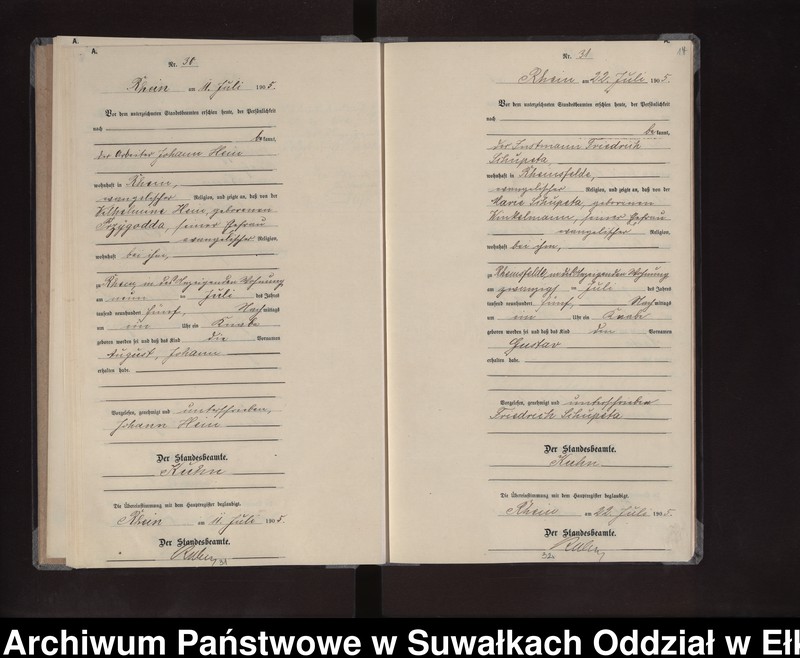 A.
A.
Nr. 30.
Rhein am 11. Juli 1905.
Vor dem unterzeichneten Standesbeamten erschien heute, der Persönlichkeit
nach
bekannt,
der Arbeiter Johann Hein
wohnhaft in Rhein,
evangelischer Religion, und zeigte an, daß von der
Wilhelmine Hein, geborenen
Przygodda, seiner Ehefrau
evangelischer Religion,
wohnhaft bei ihm,
zu Rhein, in des Anzeigenden Wohnung
am neun ten Juli des Jahres
tausend neunhundert fünf, Nachmittags
um ein Uhr ein Knabe
geboren worden ist und daß das Kind die Vornamen
August, Johann
erhalten habe.
Vorgelesen, genehmigt und unterschrieben,
Johann Hein
Der Standesbeamte.
Kuhn
Die Übereinstimmung mit dem Hauptregister beglaubigt.
Rhein am 11. Juli 1905.
Der Standesbeamte.
Kuhn
31
14
Nr. 31.
Rhein am 22. Juli 1905.
Vor dem unterzeichneten Standesbeamten erschien heute, der Persönlichkeit
nach
bekannt,
der Instmann Friedrich
Schupeta,
wohnhaft in Rheinsfelde,
evangelischer Religion, und zeigte an, daß von der
Marie Schupeta, geborenen
Winkelmann, seiner Ehefrau
evangelischer Religion,
wohnhaft bei ihm,
zu Rheinsfelde, in des Anzeigenden Wohnung
am zwanzigsten Juli des Jahres
tausend neunhundert fünf, Nachmittags
um ein Uhr ein Knabe
geboren worden ist und daß das Kind den Vornamen
Gustav
erhalten habe.
Vorgelesen, genehmigt und unterschrieben
Friedrich Schupeta
Der Standesbeamte.
Kuhn
Die Übereinstimmung mit dem Hauptregister beglaubigt.
Rhein am 22. Juli 1905.
Der Standesbeamte.
Kuhn
Archiwum Państwowe w Suwałkach Oddział w Ełk